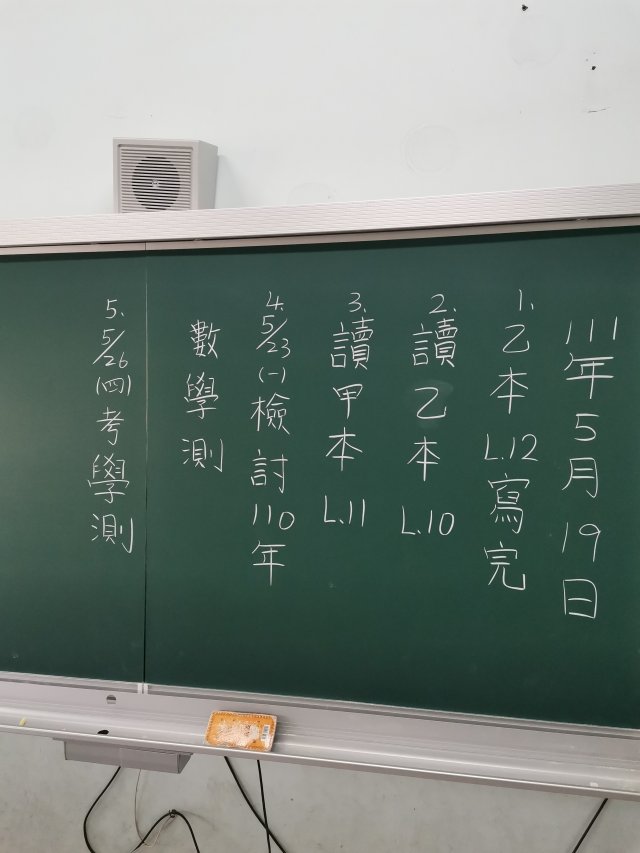 111年5月19日
1.乙本L.12寫完
2.讀乙本L.10
3.讀甲本L.11
4.5/23(一)檢討110年
數學測
5.5/26(四)考學測